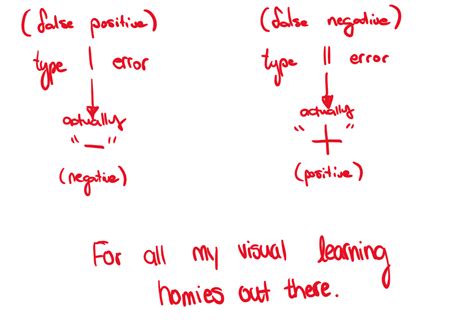 (false positive)
type I error
actually
"–"
(negative)
(false negative)
type II error
actually
"+"
(positive)
For all my visual learning
homies out there.